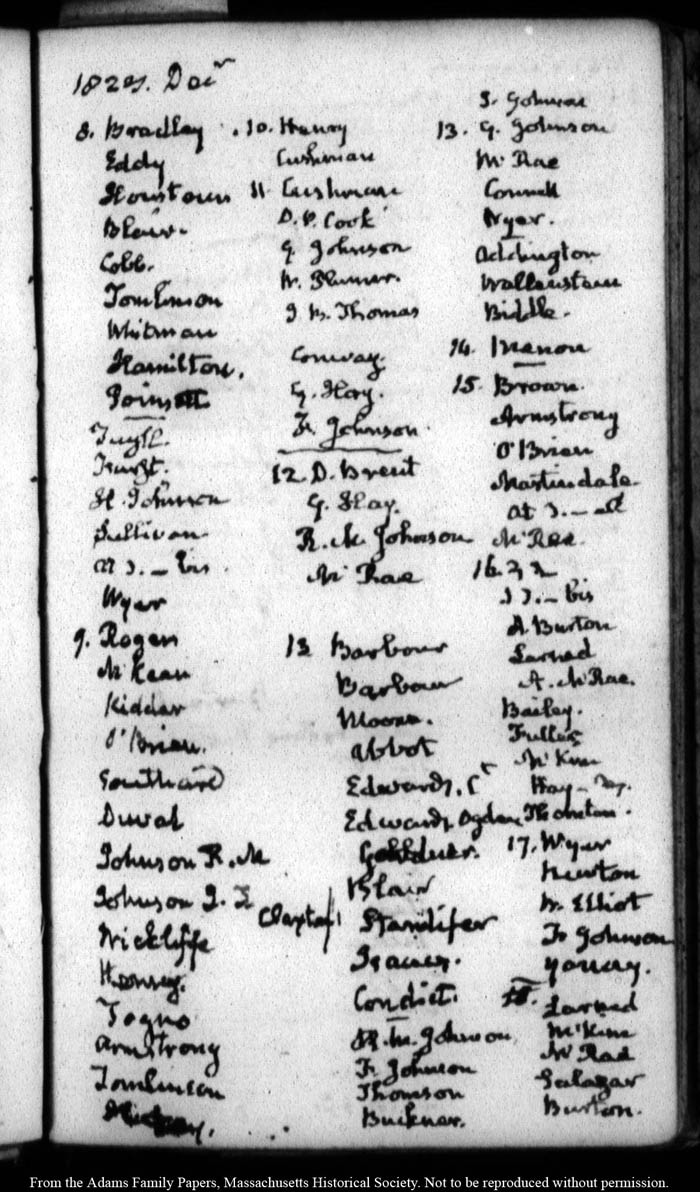 1823. Decr
8. Bradley
Eddy
Houstoun
Blair.
Cobb.
Tomlinson
Whitman
Hamilton.
Poinsett
Fuyll.
H. Johnson
Sullivan
at 3. — bis.
Wyer
9. Rogers
McKean
Kidder
O'Brien.
Southard
Duval
Johnson R. M
Johnson J. T
Wickliffe
Henry.
Togno
Armstrong
Tomlinson
10. Henry
Cushman
11. Cushman
D. P. Cook
G. Johnson
W. Plumer.
J B. Thomas
Conway.
G. Hay.
Fr. Johnson
12. D. Brent
G. Hay.
R. M. Johnson
McRae
13 Barbour
Barbour
Moore.
Abbot
Edwards. Ct
Edwards Ogden
Blair
Claxton Standifer
Isacks.
Condict.
R. M. Johnson
F. Johnson
Thomson
Buckner.
S. Johnson
13. G. Johnson
McRae
Connell
Wyer.
Addington
Wallenstein
Biddle.
14. Menou
15. Brown.
Armstrong
O'Brien
Martindale
at 3. — all
McRae.
16. 22
33. — bis
A. Burton
Larned
A. McRae.
Bailey.
Fuller
McKim
Hay —
Thornton.
17. Wyer
Newton
W. Elliot
Fr Johnson
Young.
18. Larned
McKim
McRae
Salazar
Burton.
From the Adams Family Papers, Massachusetts Historical Society. Not to be reproduced without permission.